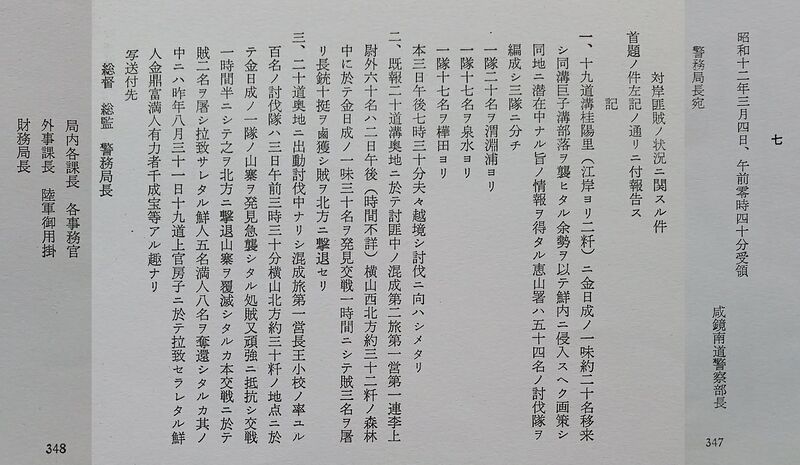 七
昭和十二年三月四日、午前零時四十分受領
咸鏡南道警察部長
警務局長宛
対岸匪賊ノ状況ニ関スル件
首題ノ件左記ノ通リニ付報告ス
記
一、十九道溝桂陽里（江岸ヨリ二粁）ニ金日成ノ一味約二十名移来
シ同溝巨子溝部落ヲ襲ヒタル余勢ヲ以テ鮮内ニ侵入スヘク画策シ
同地ニ潜在中ナル旨ノ情報ヲ得タル恵山署ハ五十四名ノ討伐隊ヲ
編成シ三隊ニ分チ
一隊二十名ヲ渭淵浦ヨリ
一隊十七名ヲ泉水ヨリ
一隊十七名ヲ樺田ヨリ
本三日午後七時三十分夫々越境シ討伐ニ向ハシメタリ
二、既報二十道溝奥地ニ於テ討匪中ノ混成第二旅第一営第一連李上
尉外六十名ハ二日午後（時間不詳）横山西北方約三十二粁ノ森林
中に於テ金日成ノ一味三十名ヲ発見交戦一時間ニシテ賊三名ヲ屠
リ長銃十挺ヲ鹵獲シ賊ヲ北方ニ撃退セリ
三、二十道奥地ニ出動討伐中ナリシ混成旅第一営長王小校ノ率ユル
百名ノ討伐隊ハ三日午前三時三十分横山北方約三十粁ノ地点ニ於
テ金日成ノ一隊ノ山寨ヲ発見急襲シタル処賊又頑強ニ抵抗シ交戦
一時間半ニシテ之ヲ北方ニ撃退山寨ヲ覆滅シタルカ本交戦ニ於テ
賊二名ヲ屠シ拉致サレタル鮮人五名満人八名ヲ奪還シタルカ其ノ
中ニハ昨年八月三十一日十九道上官房子ニ於テ拉致セラレタル鮮
人金鼎富満人有力者千成宝等アル趣ナリ
写送付先
総督　総監　警務局長
局内各課長　各事務官
外事課長　陸軍御用掛
財務局長
347
348